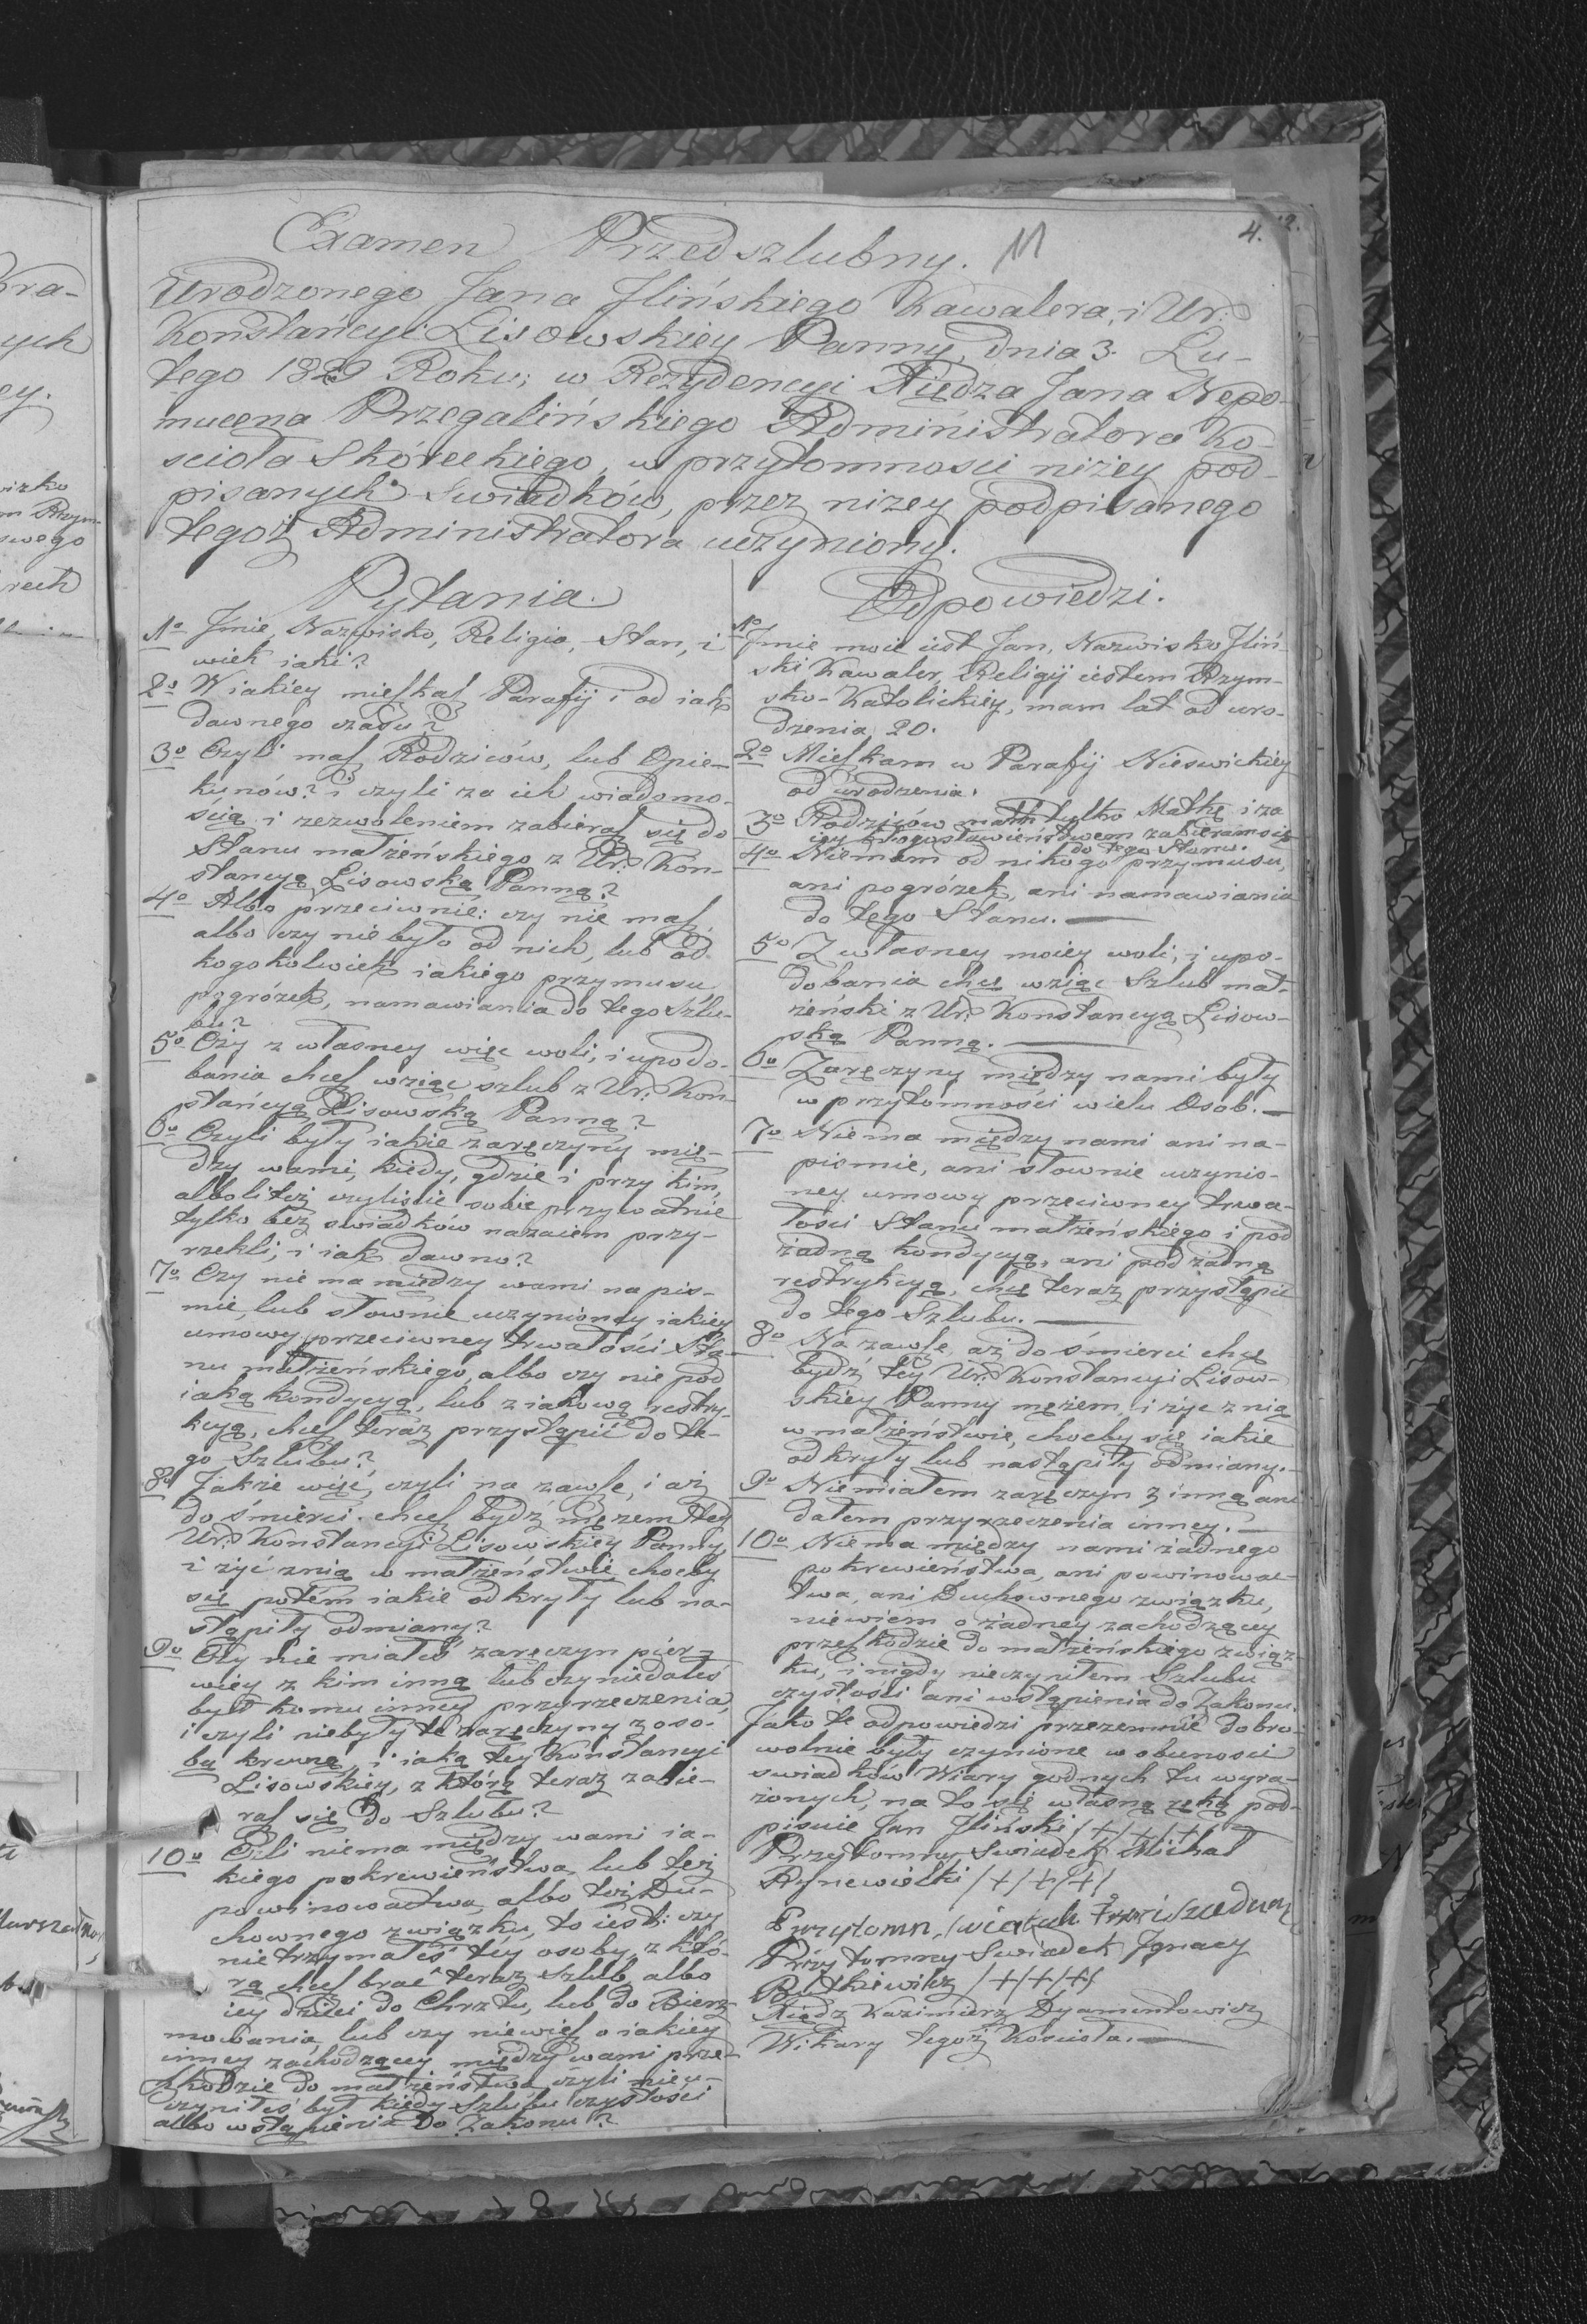 Examen Przedszlubny. 11
4.
Urodzonego Jana Jlińskiego Kawalera, i Ur.
Konstańcyi Lisowskiey Panny, dnia 3. Lu-
tego 1829 Roku; w Rezydencyi Xiędza Jana Nepo-
mucena Przegalińskiego Administratora Ko-
scioła Skóreckiego, w przytomnosci niżey pod-
pisanych Swiadków, przez niżey podpisanego
tegoż Administratora uczyniony.
Pytania.
1o Jmie, Nazwisko, Religia, Stan, i
wiek iaki?
2o W iakiéy mieſkaſ Parafij i od iak
dawnego czasu?
3o Czyli maſ Rodziców, lub Opie-
kunów? i czyli za ich wiadomo-
ścią i zezwoleniem zabieraſ się do
Stanu małżeńskiego z Ur. Kon-
stancyą Lisowską Panną?
4o Albo przeciwnie: czy nie maſ,
albo czy nie było od nich, lub od
kogokolwiek iakiego przymusu
pogróżek, namawiania do tego Szlu-
bu?
5o Czy z własney więc woli, i upodo-
bania chceſ wziąć szlub z Ur. Kon-
stańcyą Lisowską Panną?
6o Czyli były iakie zaręczyny mię-
dzy wami, kiedy, gdzie i przy kim,
albo liteż czyliście sobie prywatnie
tylko bez swiadków nazaiem przy-
rzekli, i iak dawno?
7o Czy nie ma między wami na piś-
mie, lub słownie uczynioney iakiey
umowy przeciwney trwałości Sta-
nu małżeńskiego, albo czy nie pod
iaką kondycyą, lub z iakową restry-
kcyą, chceſ teraz przystąpić do te-
go Szlubu?
8o Jakże więc, czyli na zawſe, i aż
do śmierci chceſ bydź mężem tey
Ur. Konstancyi Lisowskiey Panny,
i żyć znią w małżeństwie choćby
się potém iakie odkryły lub na-
stąpiły odmiany?
9o Czy nie miałeś zaręczyn pier-
wiey z kim inną lub czy niedałeś
był komu inney przyrzeczenia,
i czyli niebyły te zaręczyny z oso-
bą krewną, i iaką tey Konstancyi
Lisowskiey, z którą teraz zabie-
raſ się do Szlubu?
10o Czli niema między wami ia-
kiego pokrewieństwa, lub też
powinowactwa, albo też Du-
chownego związku, to iest: czy
nie trzymałeś téy osoby, z któ-
rą chceſ brać teraz Szlub, albo
iey dzieci do Chrztu, lub do Bierz-
mowania, lub czy niewieſ o iakiey
inney zachodzącey między wami prze-
ſkodzie do małżeństwa czyli nieu-
czyniłeś był kiedy szlubu czystości
albo wstąpienia Do Zakonu?
Odpowiedzi.
1o Jmie moie iest Jan, Nazwisko Jliń-
ski Kawaler, Religij iestem Rzym-
sko-Katolickiey, mam lat od uro-
dzenia 20.
2o Mieſkam w Parafij Nieswickiéy
od urodzenia.
3o Rodziców mam tylko Matkę i za
iey błogosławieństwem zabieram się
do tego Stanu.
4o Niemam od nikogo przymusu,
ani pogróżek, ani namawiania
do tego Stanu.
5o Z własney moiey woli, i upo-
dobania chcę wziąć Szlub mał-
żeński z Ur. Konstancyą Lisow-
ską Panną.
6o Zaręczyny między nami były
w przytomności wielu Osob.
7o Niema między nami ani na-
pismie, ani słownie uczynio-
ney umowy przeciwney trwa-
łości Stanu małżeńskiego i pod
żadną kondycyą, ani pod żadną
restrykcyą, chcę teraz przystąpić
do tego Szlubu.
8o Na zawſe, aż do śmierci chcę
bydź tey Ur. Konstancyi Lisow-
skiey Panny mężem, i żyć z nią
w małżeństwie, choćby się iakie
odkryły lub nastąpiły odmiany.
9o Niemiałem zaręczyn z inną ani
dałem przyrzeczenia inney.
10o Niema między nami żadnego
pokrewieństwa, ani powinowac-
twa, ani Duchownego związku,
niewiem o żadney zachodzącey
przeſkodzie do małżeńskiego związ-
ku, i nigdy nieczyniłem Szlubu
czystości ani wstąpienia do Zakonu.
Jako te odpowiedzi przezemnie dobro-
wolnie były czynione w obecnosci
swiadków Wiary godnych tu wyra-
żonych, na to się własną ręką pod-
pisuie Jan Jliński /+/+/+/
Przytomny Swiadek Michał
Rynewiski /+/+/+/
Przytomny Swiadek Ignacy
Butkiewicz /+/+/+/
Xiądz Kazimierz Dyamentowicz
Wikary tegoż Kościoła.